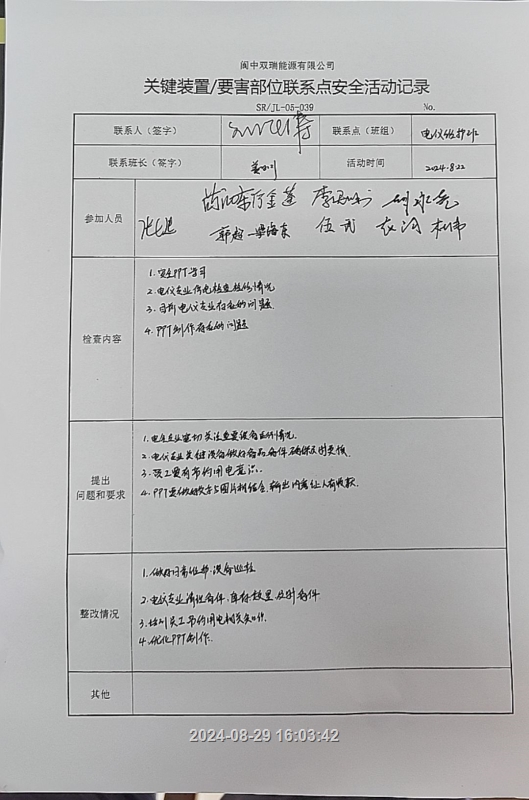 阆中双瑞能源有限公司
关键装置/要害部位联系点安全活动记录
SR/JL-05-039 No.
联系人（签字） 联系点（班组） 电仪维护班
联系班长（签字） 活动时间 2024.8.22
参加人员
检查内容
1.安全PPT学习
2.电仪专业停电检查检修情况
3.分析电仪专业存在的问题.
4.PPT制作存在的问题
提出
问题和要求
1.电气专业密切关注重要设备运行情况.
2.电仪专业关键设备做好备品备件确保及时更换.
3.员工要有节约用电意识.
4.PPT要做好文字与图片相结合,
整改情况
1.做好日常维护.设备巡检
2.电仪专业清理备件,库存数量及时备件
3.培训员工节约用电相关知识.
4.优化PPT制作.
其他
2024-08-29 16:03:42